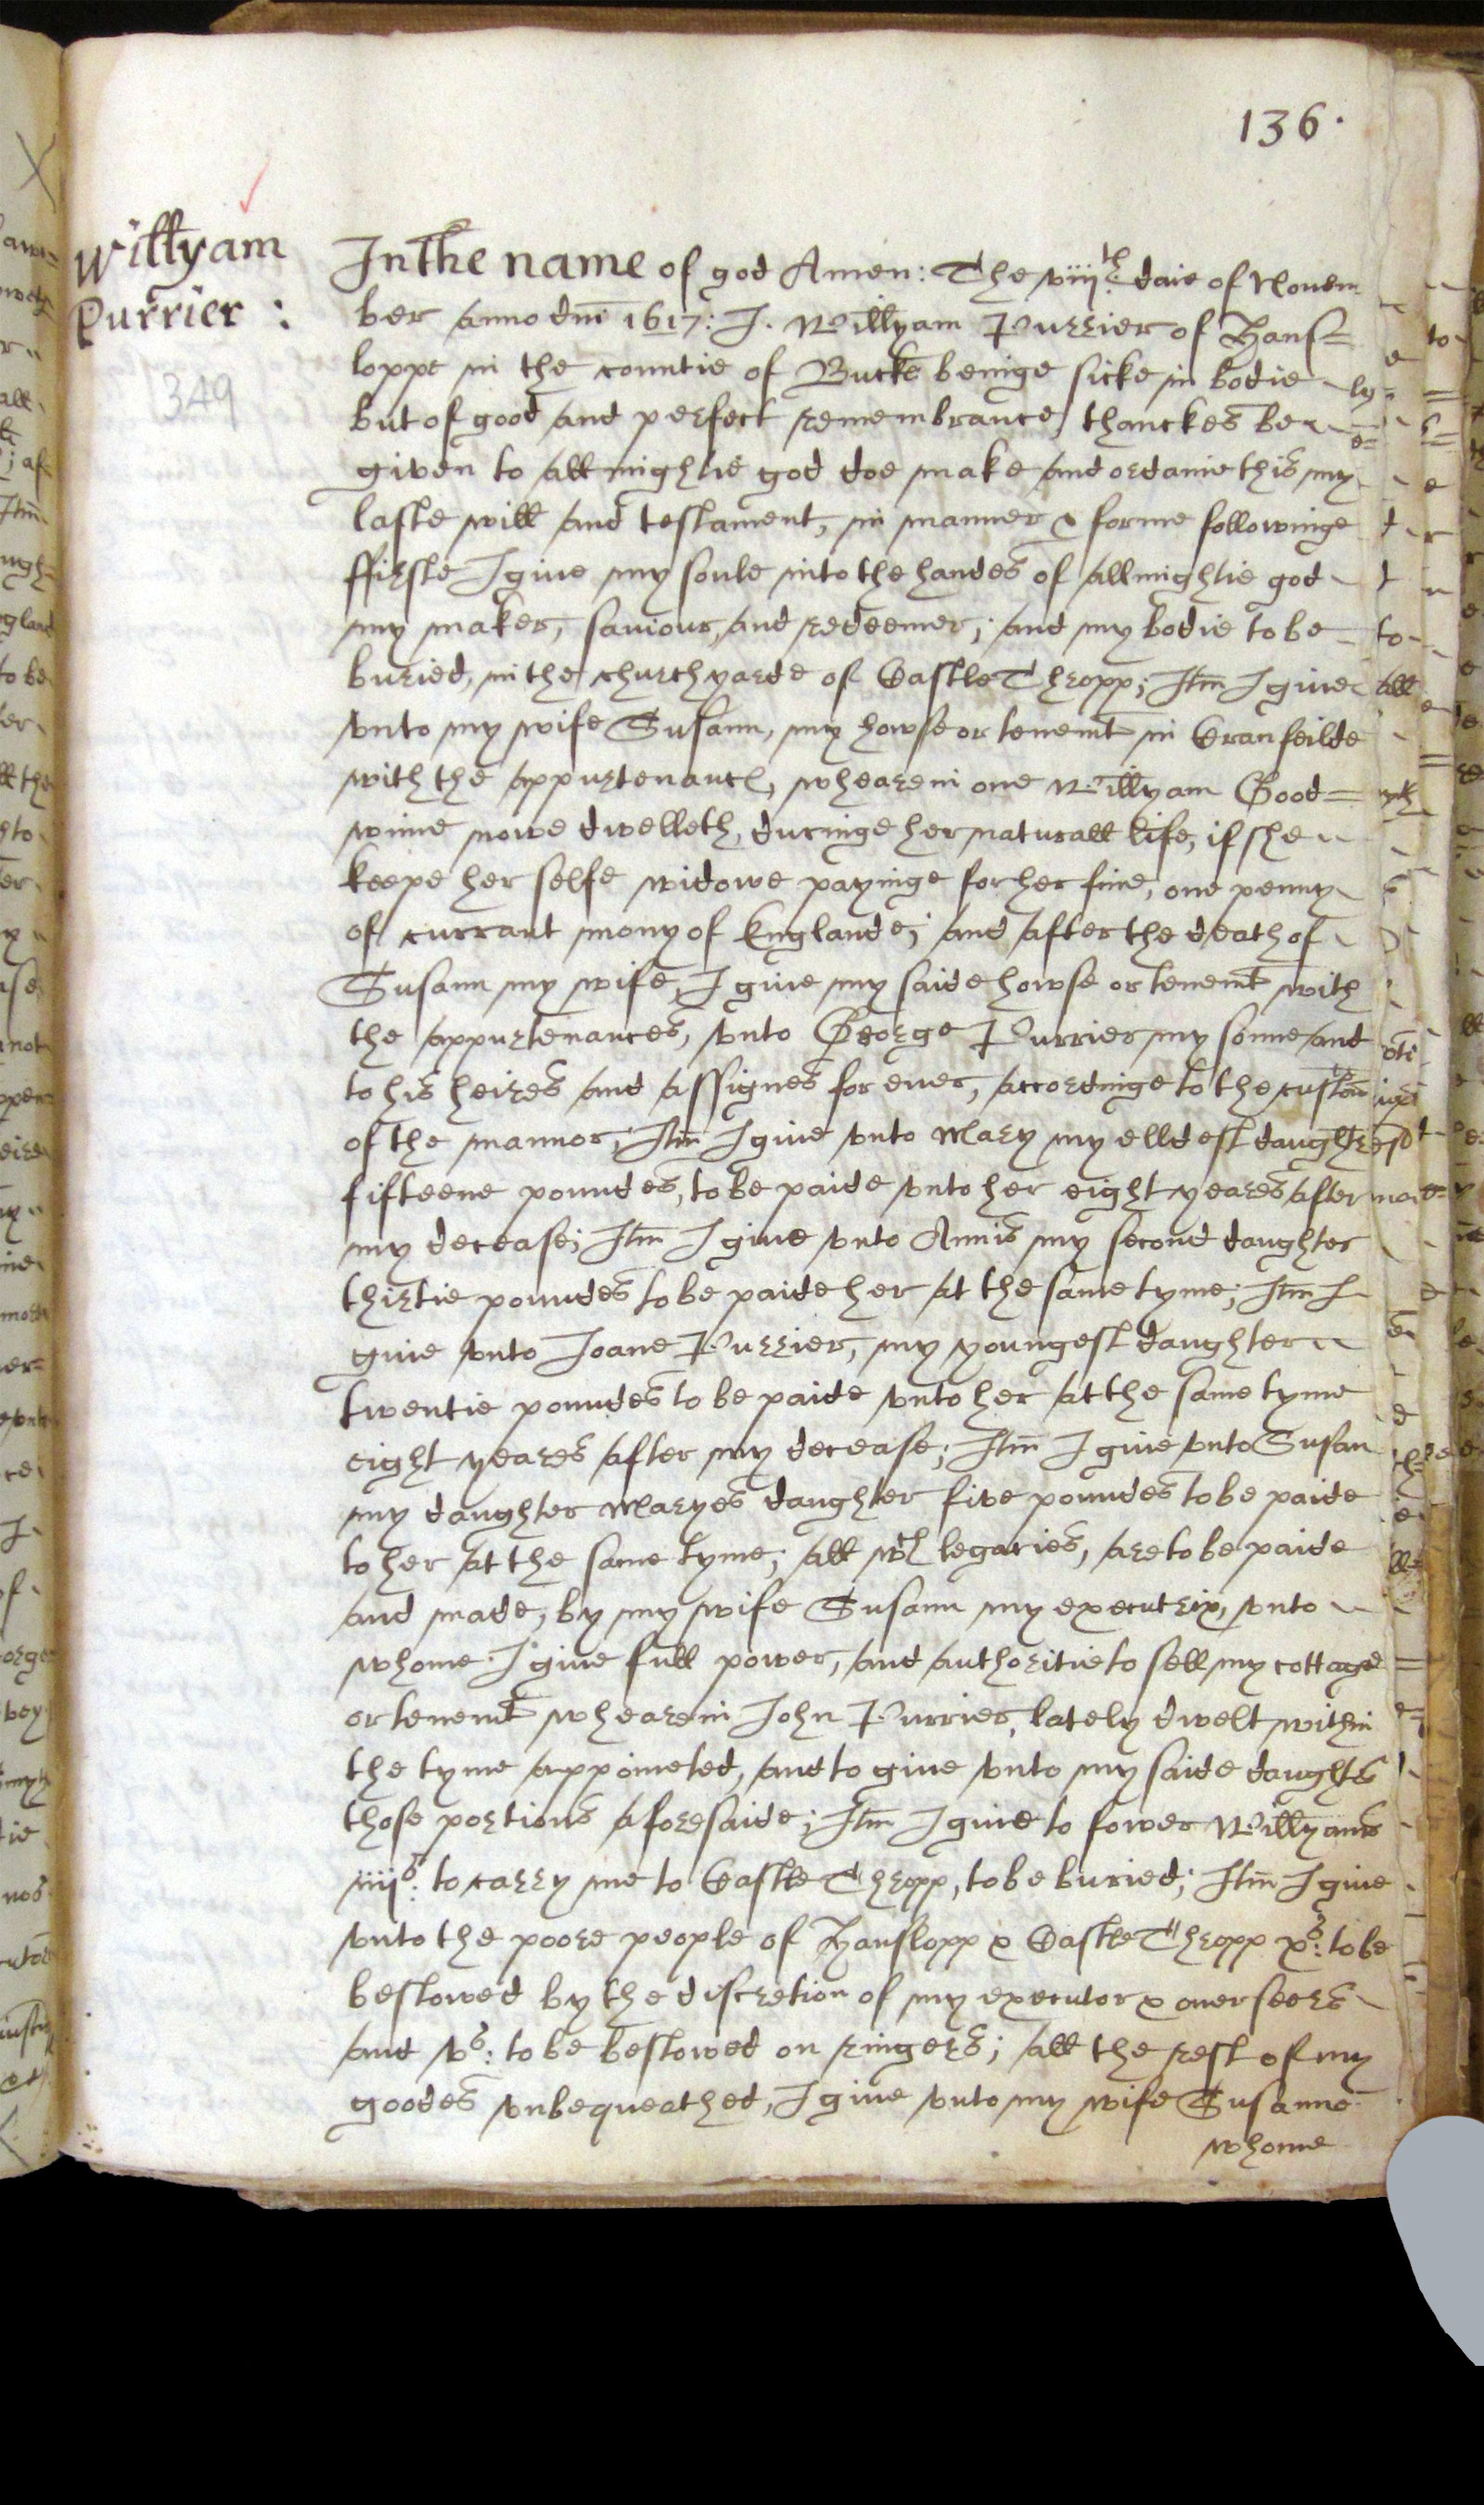 136.
Willyam
Purrier :
349
In the name of god Amen: The viij th daie of Novem
ber Anno dni 1617: I. Willyam Purrier of Hans=
loppe in the countie of Bucks beinge sicke in bodie
but of good and perfect remembrance, thanckes be
given to allmightie god doe make and ordaine this my
laste will and testament, in manner & forme followinge
ffirste I give my soule into the handes of allmightie god
my maker, saviour, and redeemer; and my bodie to be
buried, in the churchyarde of Castle Thropp; Itm I give
vnto my wife Susann, my howse or tenemt in Cranfeilde
with the appurtenances, whearein one Willyam Good=
wine nowe dwelleth, duringe her naturall life, if she
keepe her selfe widowe payinge for her fine, one penny
of currant mony of Englande; and after the death of
Susann my wife, I give my saide howse or tenemt with
the appurtenances, vnto George Purrier my sonne and
to his heires and assignes for ever, accordinge to the custom
of the mannor; Itm I give vnto Mary my elldest daughter
fifteene poundes, to be paide vnto her eight yeares after
my decease; Itm I give vnto Annis my second daughter
thirtie poundes to be paide her at the same tyme; Itm I
give vnto Joane Purrier, my youngest daughter
twentie poundes to be paide vnto her at the same tyme
eight yeares after my decease; Itm I give vnto Susan
my daughter Maryes daughter five poundes to be paide
to her at the same tyme; all wch legacies, are to be paide
and made, by my wife Susann my executrix, vnto
whome I give full power, and authoritie to sell my cottage
or tenemt whearein John Purrier, lately dwelt within
the tyme appointed, and to give vnto my saide daughters
those portions aforesaide; Itm I give to fower Willyams
iiijs: to carry me to Castle Thropp, to be buried; Itm I give
vnto the poore people of Hanslopp & Castle Thropp xs: to be
bestowed by the discretion of my executor & overseers
and vs: to be bestowed on ringers; all the rest of my
goodes vnbequeathed, I give vnto my wife Susanne
whome